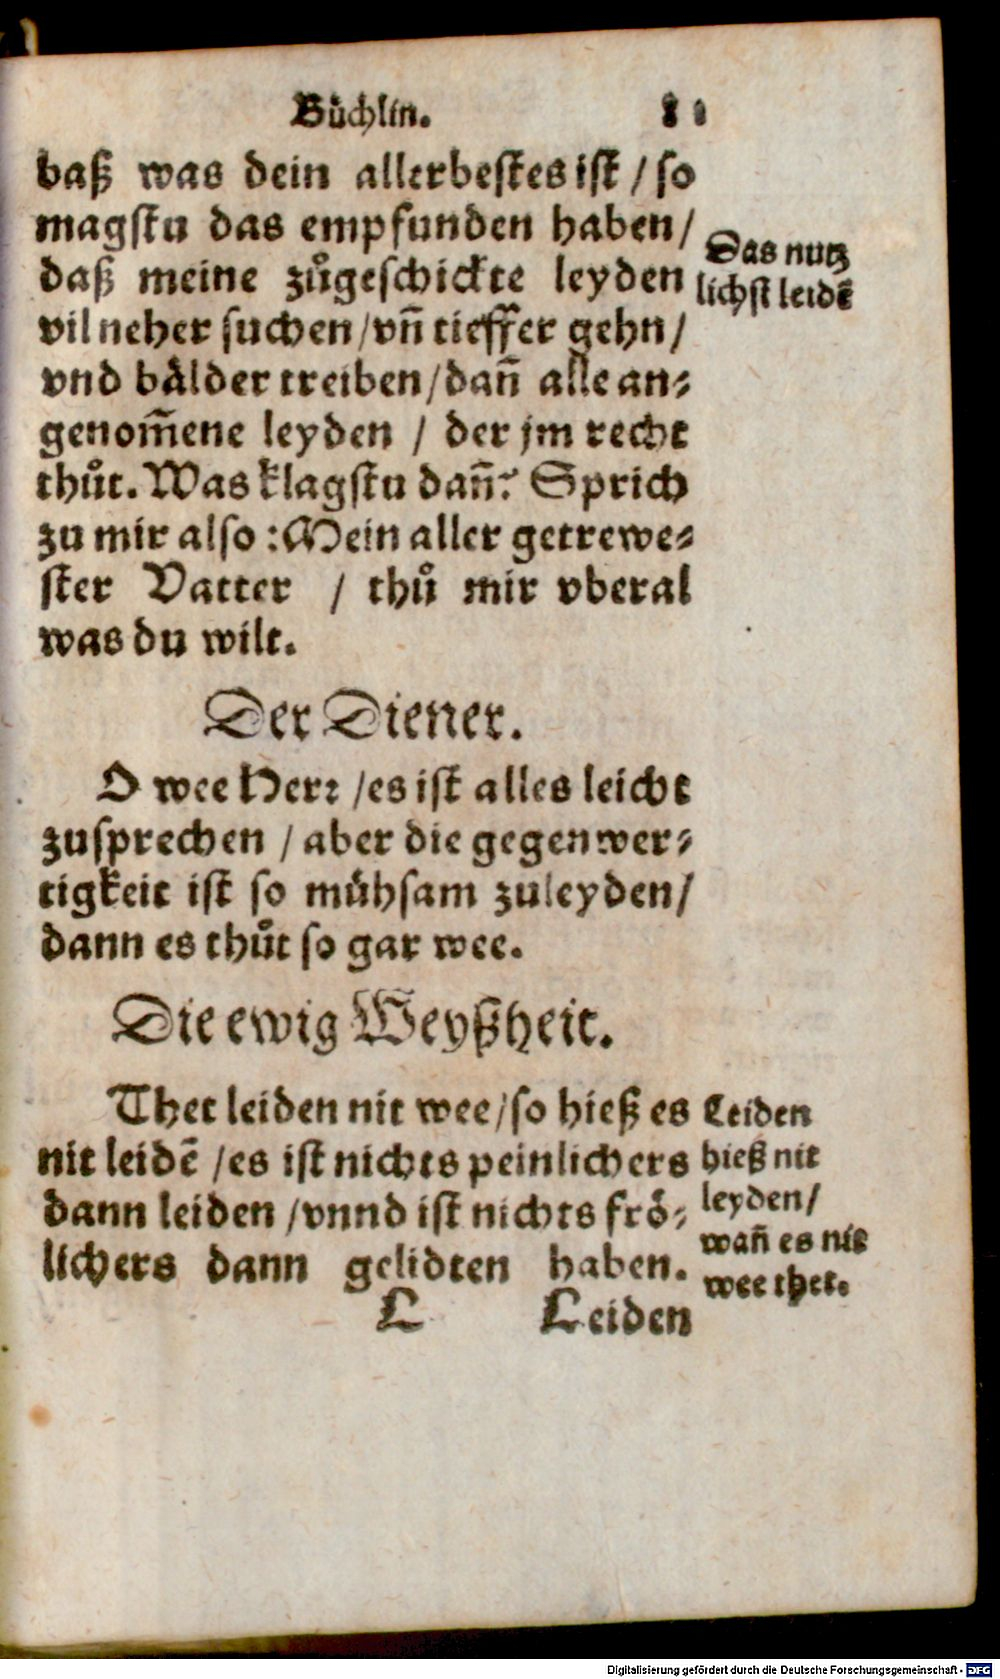 Bůchlin. 81
baß was dein allerbestes ist / so
magstu das empfunden haben /
daß meine zůgeschickte leyden
vil neher suchen / vñ tieffer gehn /
vnd bålder treiben / dañ alle an⸗
genom̃ene leyden / der jm recht
thůt. Was klagstu dañ? Sprich
zu mir also : Mein aller getrewe⸗
ster Vatter / thů mir vberal
was du wilt.
Das nutz
lichst leidẽ
Der Diener.
O wee Herꝛ / es ist alles leicht
zusprechen / aber die gegenwer⸗
tigkeit ist so můhsam zuleyden /
dann es thůt so gar wee.
Die ewig Weyßheit.
Thet leiden nit wee / so hieß es
nit leidẽ / es ist nichts peinlichers
dann leiden / vnnd ist nichts frô⸗
lichers dann gelidten haben.
Leiden
hieß nit
leyden /
wañ es nit
wee thet.
L Leiden
Digitalisierung gefördert durch die Deutsche Forschungsgemeinschaft - DFG